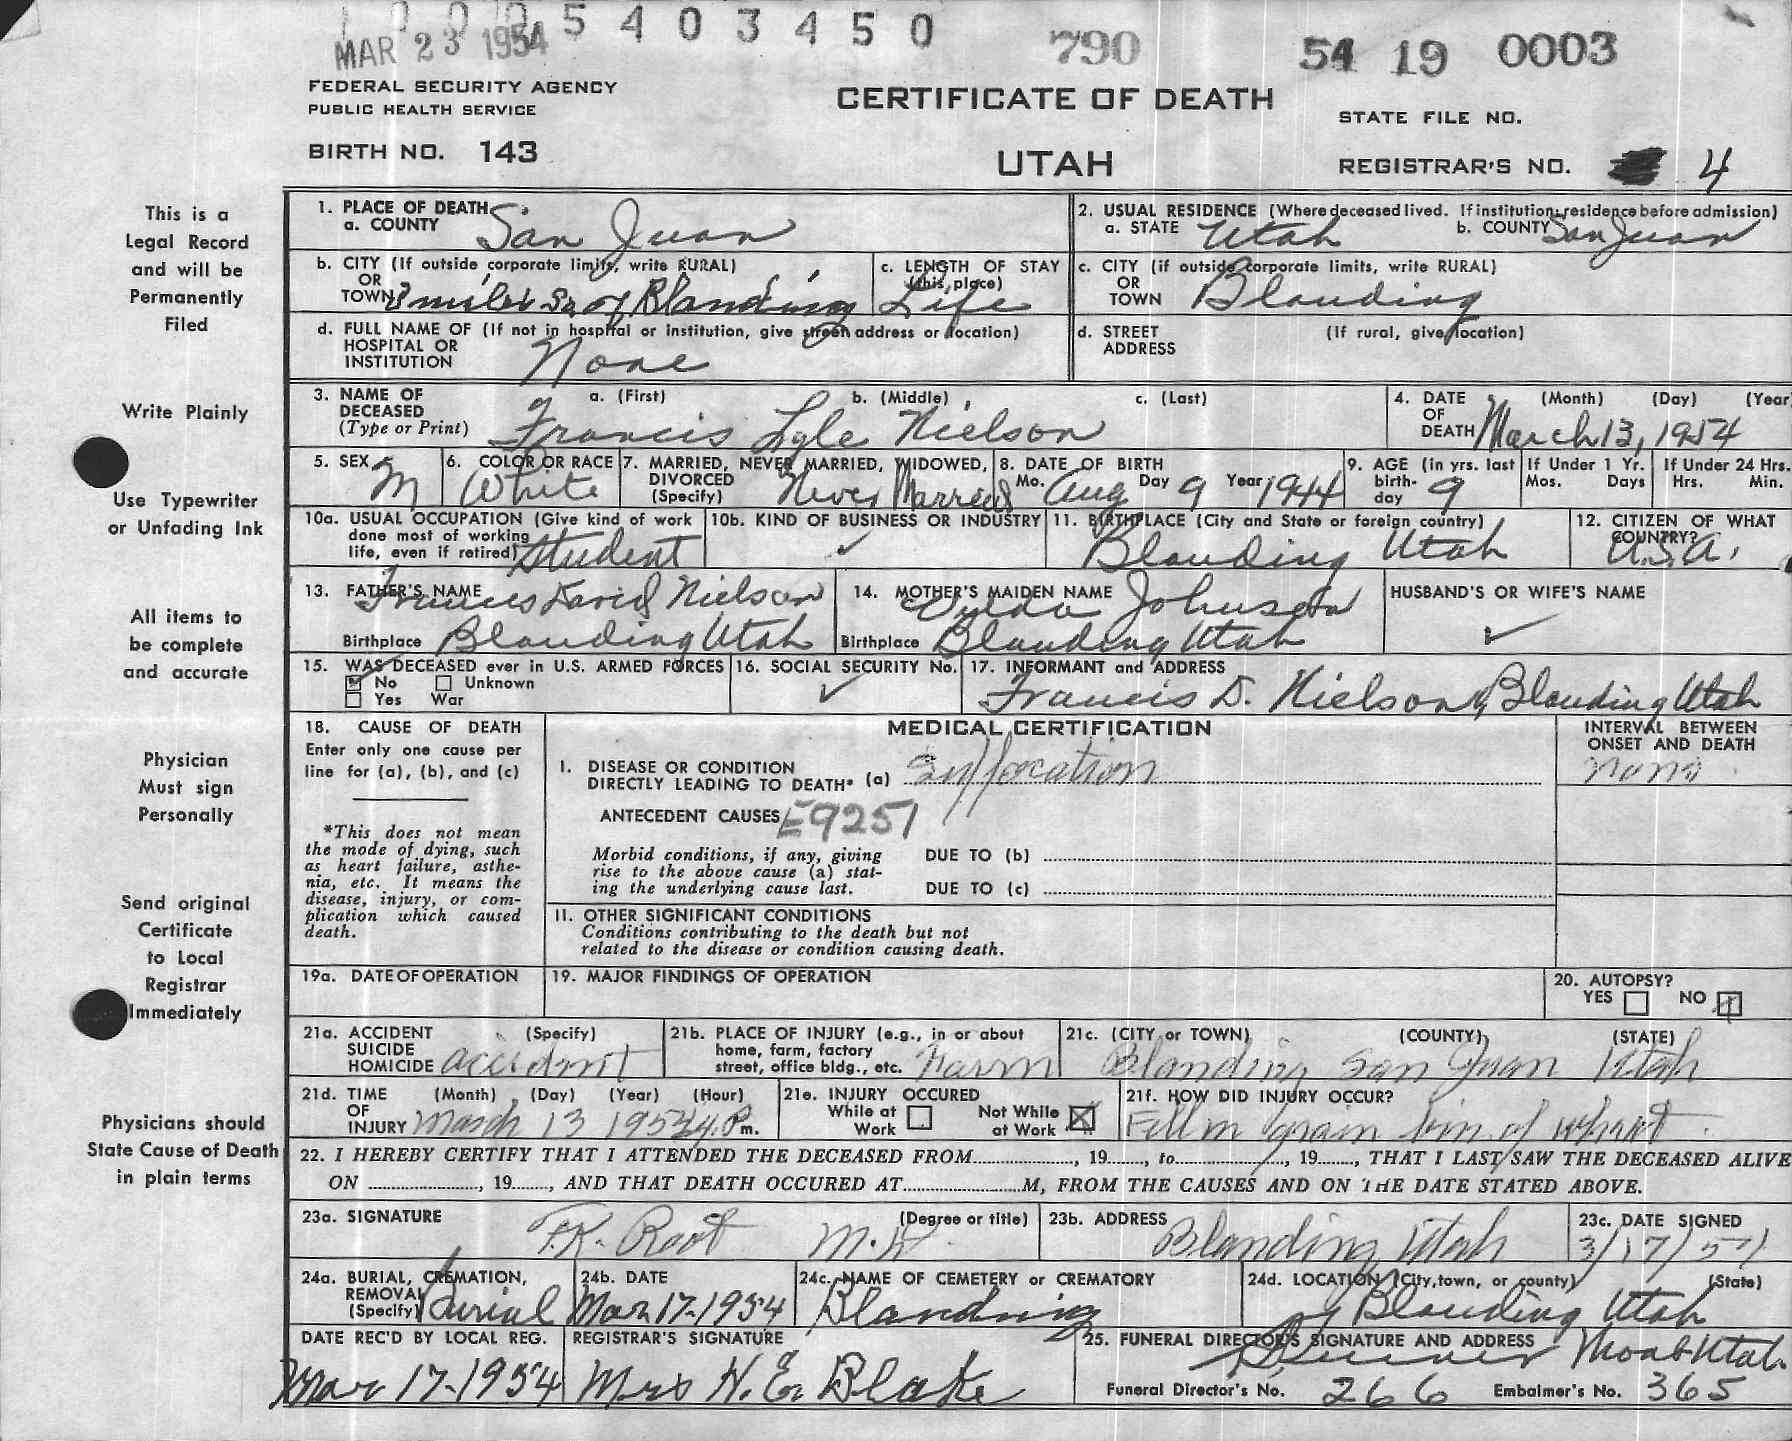 MAR 23 1954 5 4 0 3 4 5 0 790 54 19 0003
FEDERAL SECURITY AGENCY
PUBLIC HEALTH SERVICE
CERTIFICATE OF DEATH
STATE FILE NO.
BIRTH NO. 143
UTAH
REGISTRAR'S NO. 4
This is a
Legal Record
and will be
Permanently
Filed
Write Plainly
Use Typewriter
or Unfading Ink
All items to
be complete
and accurate
Physician
Must sign
Personally
Send original
Certificate
to Local
Registrar
Immediately
Physicians should
State Cause of Death
in plain terms
1. PLACE OF DEATH
a. COUNTY San Juan
2. USUAL RESIDENCE (Where deceased lived. If institution: residence before admission)
a. STATE Utah b. COUNTY San Juan
b. CITY (If outside corporate limits, write RURAL)
OR
TOWN 3 miles So. of Blanding
c. LENGTH OF STAY
(this place)
Life
c. CITY (if outside corporate limits, write RURAL)
OR
TOWN Blanding
d. FULL NAME OF (If not in hospital or institution, give street address or location)
HOSPITAL OR
INSTITUTION None
d. STREET (If rural, give location)
ADDRESS
3. NAME OF a. (First) b. (Middle) c. (Last)
DECEASED
(Type or Print) Francis Lyle Nielson
4. DATE (Month) (Day) (Year
OF
DEATH March 13, 1954
5. SEX M
6. COLOR OR RACE White
7. MARRIED, NEVER MARRIED, WIDOWED,
DIVORCED
(Specify) Never Married
8. DATE OF BIRTH
Mo. Aug Day 9 Year 1944
9. AGE (in yrs. last
birth-
day 9
If Under 1 Yr.
Mos. Days
If Under 24 Hrs.
Hrs. Min.
10a. USUAL OCCUPATION (Give kind of work
done most of working
life, even if retired) Student
10b. KIND OF BUSINESS OR INDUSTRY
11. BIRTHPLACE (City and State or foreign country)
Blanding Utah
12. CITIZEN OF WHAT
COUNTRY?
U.S.A.
13. FATHER'S NAME Francis David Nielson
Birthplace Blanding Utah
14. MOTHER'S MAIDEN NAME Johnson
Birthplace Blanding Utah
HUSBAND'S OR WIFE'S NAME
15. WAS DECEASED ever in U.S. ARMED FORCES
No Unknown
Yes War
16. SOCIAL SECURITY No.
17. INFORMANT and ADDRESS
Francis D. Nielson, Blanding Utah
18. CAUSE OF DEATH
Enter only one cause per
line for (a), (b), and (c)
*This does not mean
the mode of dying, such
as heart failure, asthe-
nia, etc. It means the
disease, injury, or com-
plication which caused
death.
MEDICAL CERTIFICATION
I. DISEASE OR CONDITION
DIRECTLY LEADING TO DEATH* (a) Suffocation
ANTECEDENT CAUSES E9251
Morbid conditions, if any, giving
rise to the above cause (a) stat-
ing the underlying cause last.
DUE TO (b)
DUE TO (c)
II. OTHER SIGNIFICANT CONDITIONS
Conditions contributing to the death but not
related to the disease or condition causing death.
INTERVAL BETWEEN
ONSET AND DEATH
none
19a. DATE OF OPERATION
19. MAJOR FINDINGS OF OPERATION
20. AUTOPSY?
YES NO
21a. ACCIDENT (Specify)
SUICIDE
HOMICIDE accident
21b. PLACE OF INJURY (e.g., in or about
home, farm, factory
street, office bldg., etc. Farm
21c. (CITY or TOWN) (COUNTY) (STATE)
Blanding San Juan Utah
21d. TIME (Month) (Day) (Year) (Hour)
OF
INJURY March 13 1954 4 P.m.
21e. INJURY OCCURED
While at Not While
Work at Work
21f. HOW DID INJURY OCCUR?
Fell in grain bin of wheat.
22. I HEREBY CERTIFY THAT I ATTENDED THE DECEASED FROM, 19, to, 19, THAT I LAST SAW THE DECEASED ALIVE
ON, 19, AND THAT DEATH OCCURED AT M, FROM THE CAUSES AND ON THE DATE STATED ABOVE.
23a. SIGNATURE (Degree or title)
Root M.D.
23b. ADDRESS
Blanding Utah
23c. DATE SIGNED
3/17/54
24a. BURIAL, CREMATION,
REMOVAL
(Specify) Burial
24b. DATE
Mar 17-1954
24c. NAME OF CEMETERY or CREMATORY
Blanding
24d. LOCATION (City, town, or county) (State)
Blanding Utah
DATE REC'D BY LOCAL REG.
Mar 17-1954
REGISTRAR'S SIGNATURE
Mrs H. E. Blake
25. FUNERAL DIRECTOR'S SIGNATURE AND ADDRESS
Moab Utah
Funeral Director's No. 266 Embalmer's No. 365